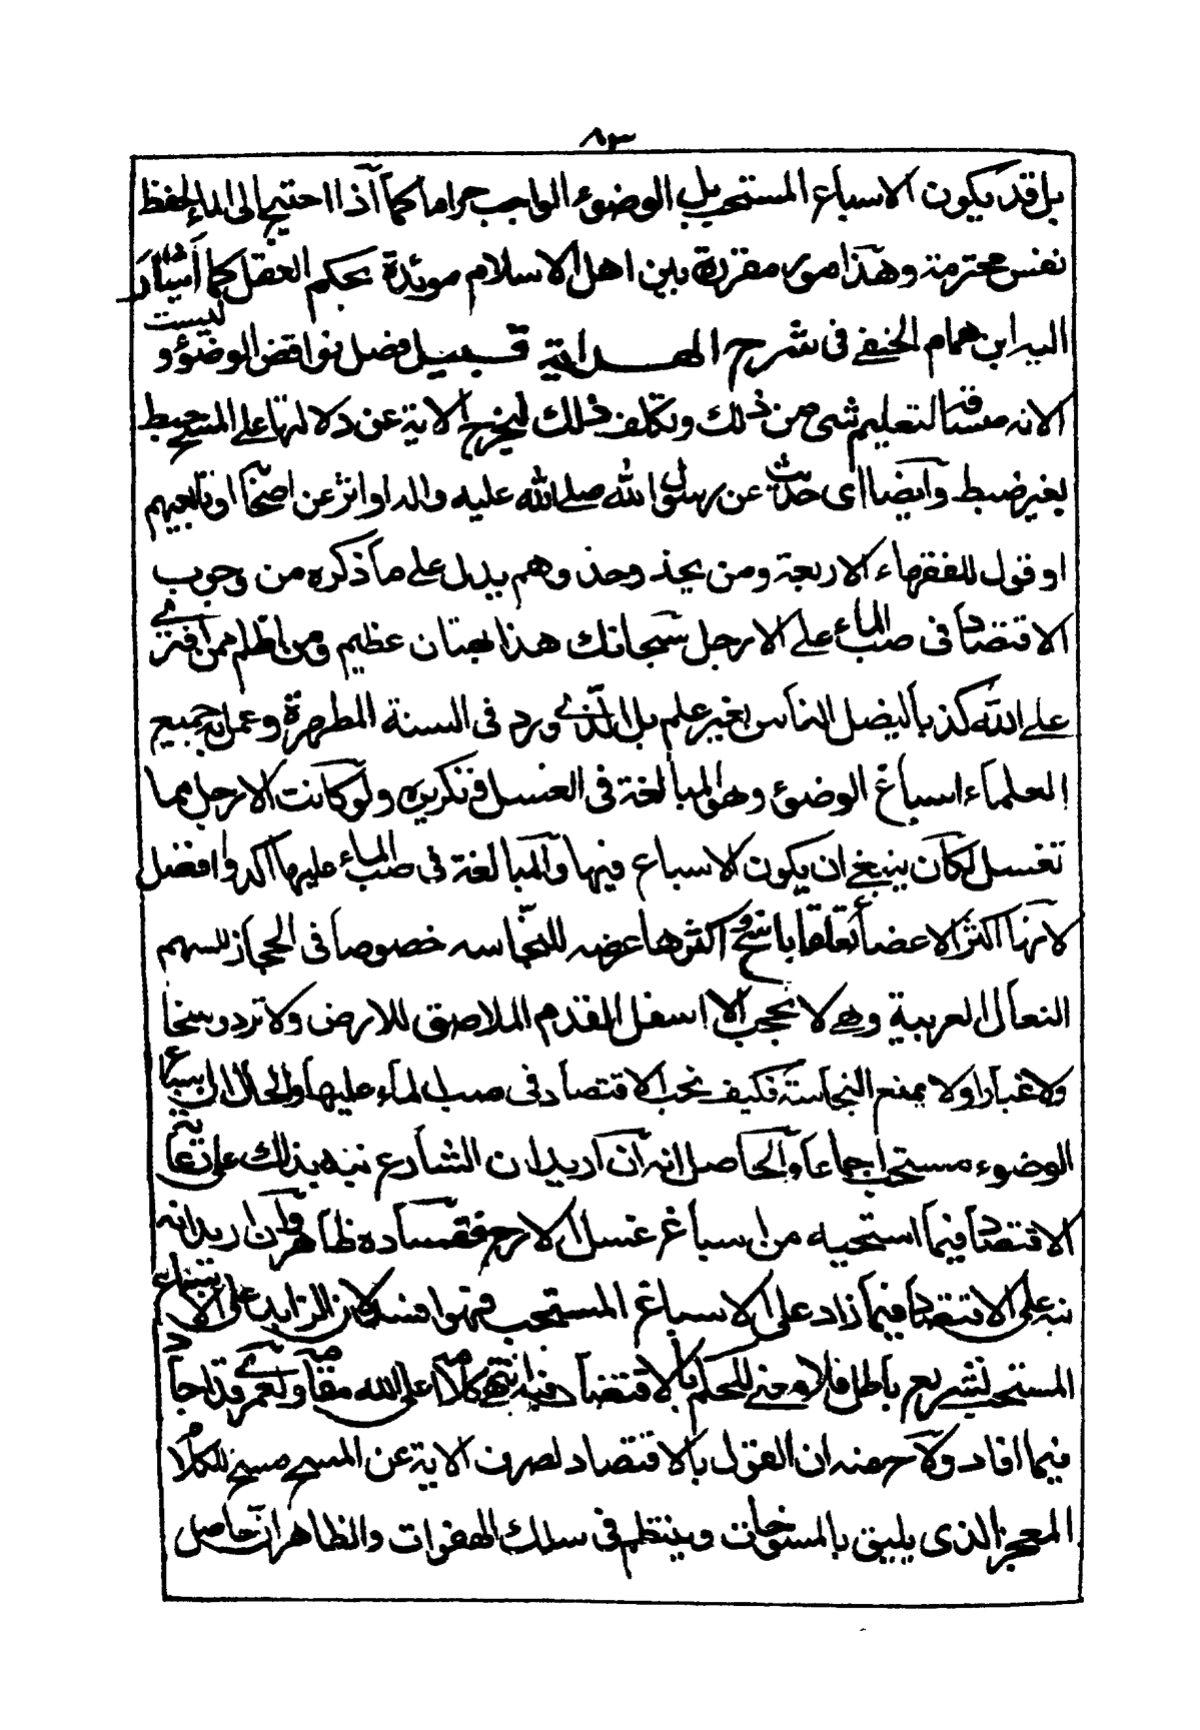 ٨٣
بل قد يكون الاسباغ المستحب بل الوضوء الواجب حراما كما اذا احتيج الى الماء لحفظ
نفس محترمة وهذا امور مقررة بين اهل الاسلام موئدة بحكم العقل كما اشار
اليه ابن همام الحنفے فى شرح الهداية قبيل فصل نواقض الوضوء وليست
الاية مسوقة لتعليم شئ من ذلك وتكلف ذلك ليخرج الاية عن دلالتها على المسح خبط
بغير ضبط وآيضا اى حديث عن رسول الله صلے الله عليه واله او اثر عن اصحابه او تابعيهم
او قول للفقهاء الاربعة ومن يحذ وحذ وهم يدل على ما ذكره من وجوب
الاقتصاد فى صب الماء على الارجل سبحانك هذا بهتان عظيم ومن اظلم ممن افترے
على الله كذبا ليضل الناس بغير علم بل الذے ورد فى السنة المطهرة وعمل به جميع
العلماء اسباغ الوضوء وهو المبالغة فى الغسل وتكريره ولو كانت الارجل مما
تغسل لكان ينبغے ان يكون الاسباغ فيها والمبالغة فى صب الماء عليها اكد وافضل
لانها اكثر الاعضاء تعلقا بالوسخ واكثرها عرضه للنجاسه خصوصا فى الحجاز للبسهم
النعال العربية وهے لا تحجب الا اسفل القدم الملاصق للارض ولا ترد وسخا
ولا غبارا ولا تمنع النجاسة فكيف يجب الاقتصاد فى صب الماء عليها والحال ان اسباغ
الوضوء مستحب اجماعا والحاصل انه ان اريد ان الشارع نبه بذلك على رعاية
الاقتصاد فيما استحبه من اسباغ غسل الارجل ففساده ظاهر وان اريد انه
نبه على الاقتصاد فيما زاد على الاسباغ المستحب فهو افسد لان الزايد على الاسباغ
المستحب تشريع باطل فلا معنے للحكم بالاقتصاد فيه انتهى كلامه اعلى الله مقامه ولعمرے قد اجاد
فيما افاد ولاح منه ان القول بالاقتصاد لصرف الاية عن المسح مسخ للكلام
المعجز الذى يليق بالمسوخات وينتظم فى سلك الهفوات والظاهر ان حاصل